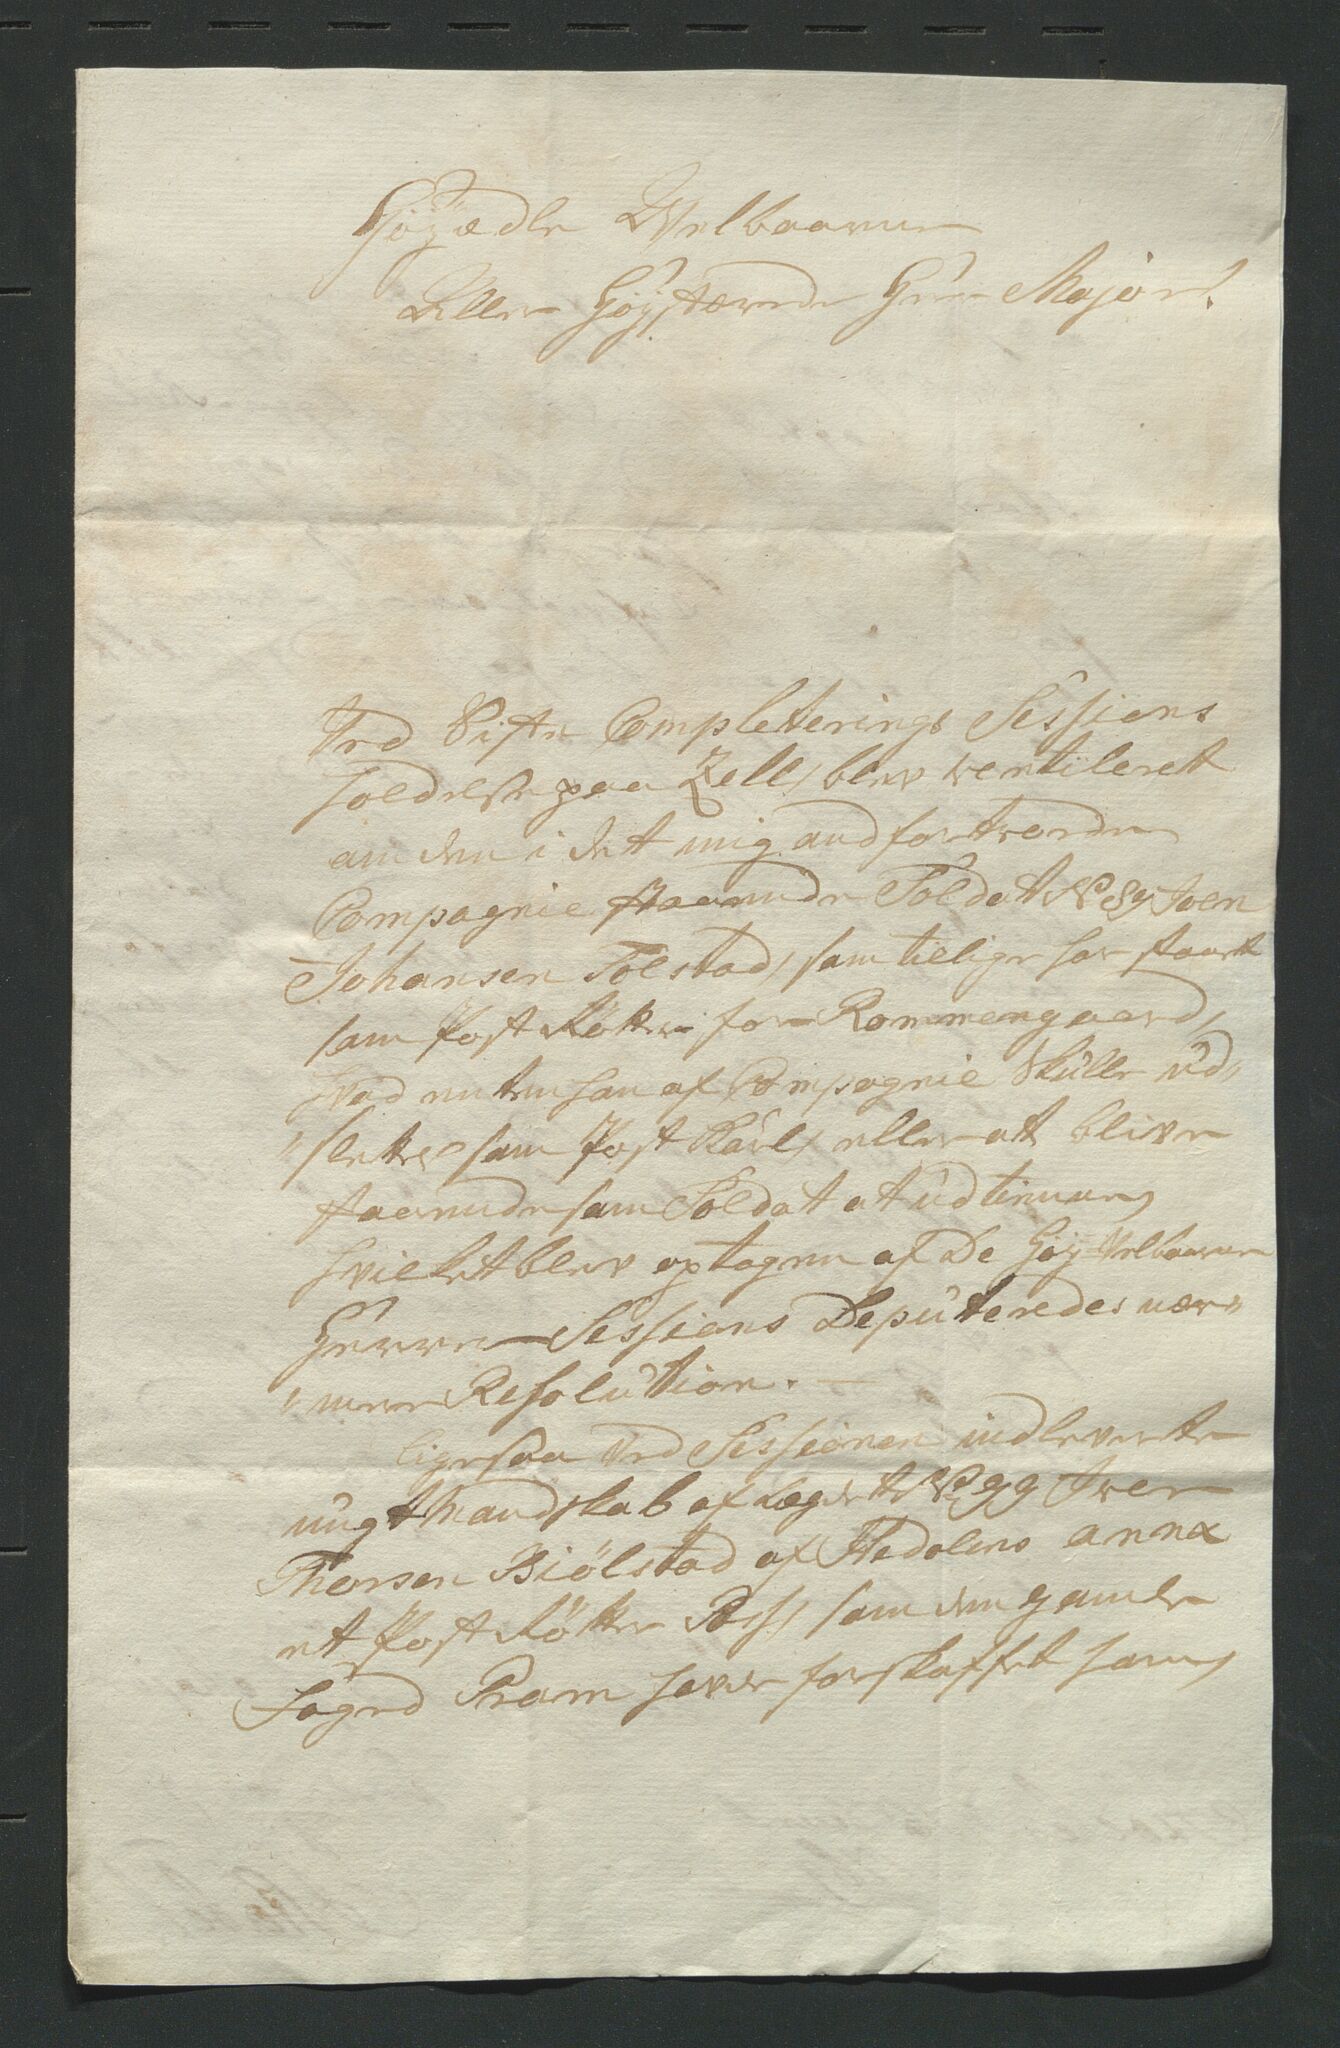 Höyædle Velbaarne
Aller Höystærede Her Major!
Ved Siste Completerings Sessions
holdelse paa Zell, blev ventileret
om den i det mig andfortroede
Compagnie staaende Soldat No 84 Joen
Johansen Tolstad, som tillige har staaet
som Post Röcter for Rommengaard,
hvad enten han af Compagnie Skulle ud„
„slettes som Post Karl, eller at blive
staaende som Soldat at udtienne,
hvilket blev optagen af De Höy Velbaarne
Herrer Sessions Deputeredes nær„
„mere Resolution. —
ligesaa ved Sessionen indleverte
ungt Mandskab af Lægdet No 99 Iver
Thorsen Biölstad af Hedalens annex
et Post Röcter Pass, som den gamle
Foged Pram haver forskaffet ham,